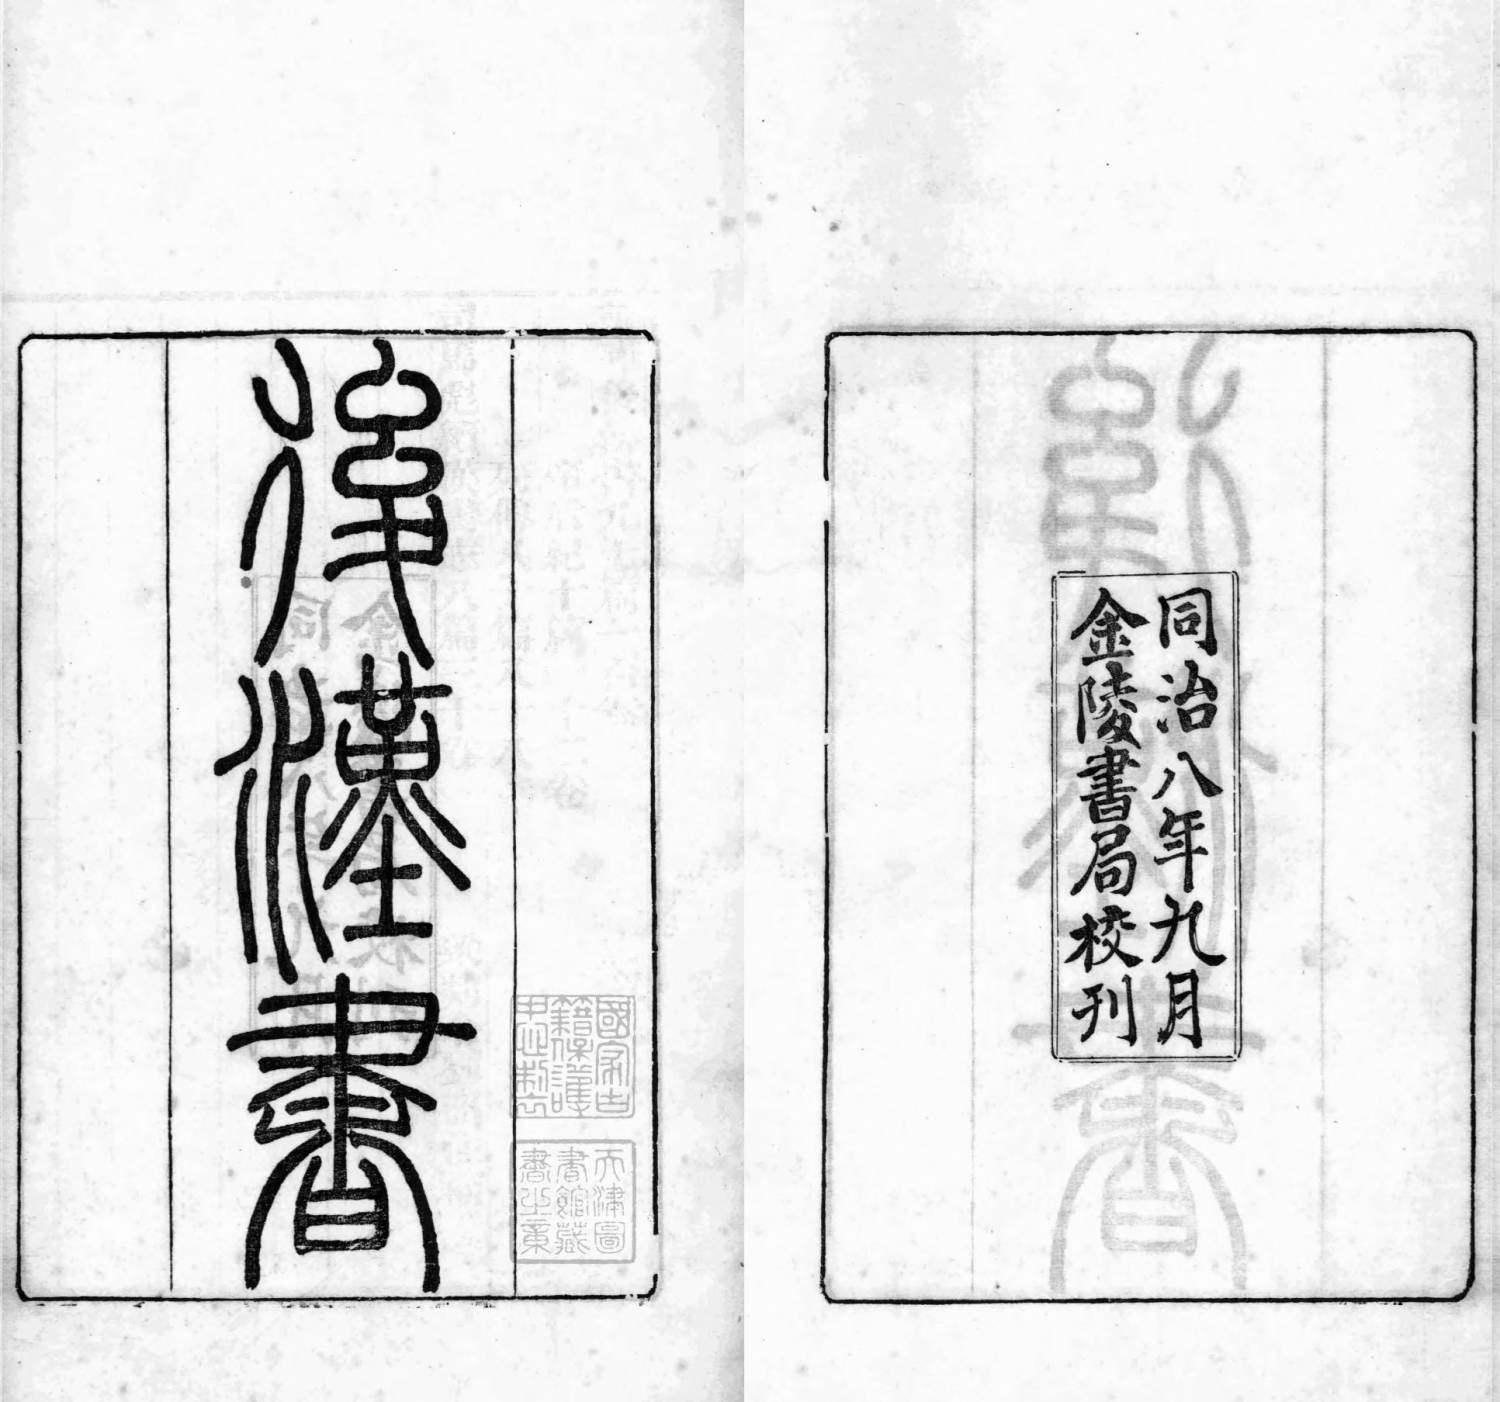 後漢書
同治八年九月
金陵書局校刊
國家古
籍保護
中心製
天津圖
書館藏
書之章